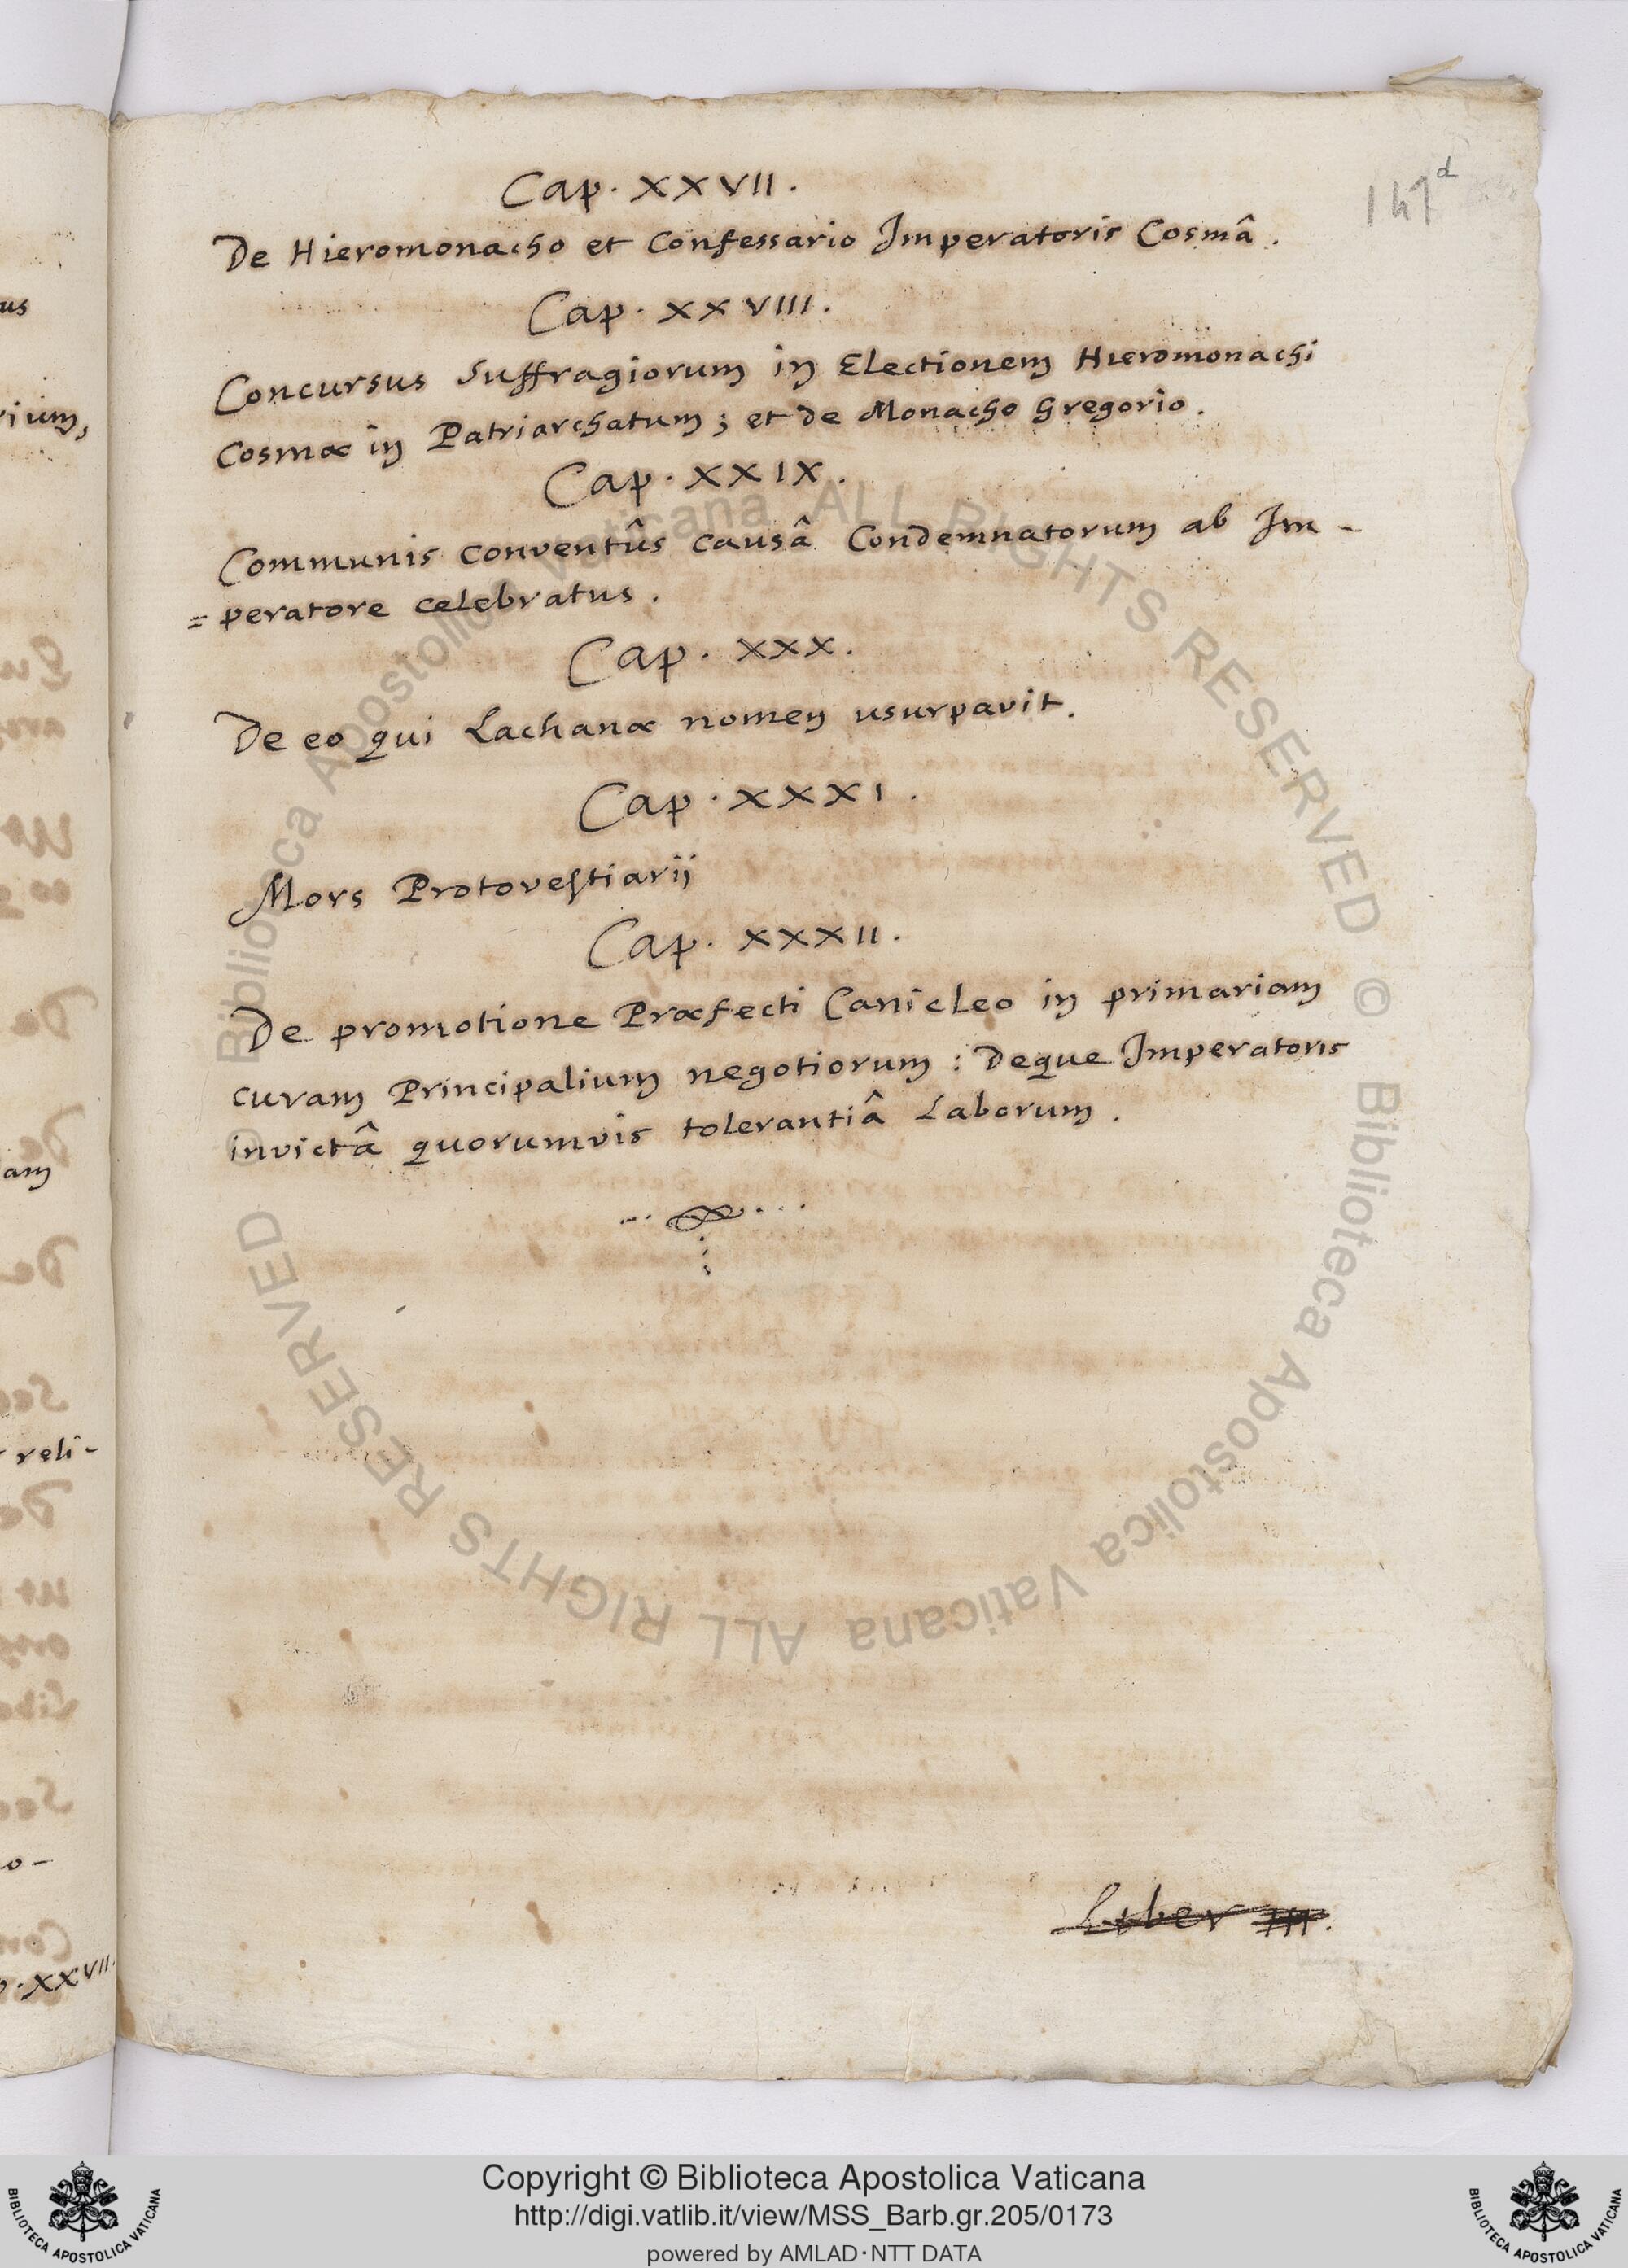 147d
Cap. XXVII.
De Hieromonacho et Confessario Imperatoris Cosmâ.
Cap. XXVIII.
Concursus Suffragiorum in Electionem Hieromonachi
Cosmæ in Patriarchatum; et de Monacho Gregorio.
Cap. XXIX.
Communis conventûs causâ Condemnatorum ab Im-
=peratore celebratus.
Cap. XXX.
De eo qui Lachanæ nomen usurpavit.
Cap. XXXI.
Mors Protovestiarij
Cap. XXXII.
De promotione Præfecti Canicleo in primariam
curam Principalium negotiorum: Deque Imperatoris
invictâ quorumvis tolerantiâ Laborum.
Liber III.
us
rium,
am
reli-
o-
XXVII.
© Biblioteca Apostolica Vaticana ALL RIGHTS RESERVED © Biblioteca Apostolica Vaticana ALL RIGHTS RESERVED
Copyright © Biblioteca Apostolica Vaticana
http://digi.vatlib.it/view/MSS_Barb.gr.205/0173
powered by AMLAD·NTT DATA
BIBLIOTECA APOSTOLICA VATICANA
BIBLIOTECA APOSTOLICA VATICANA